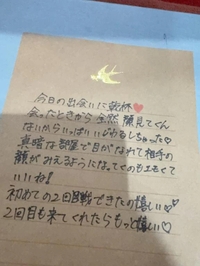 今日の出会いに乾杯❤
会ったときから全然顔見てくん
ないからいっぱいいじわるしちゃった♡
真暗な部屋で目がなれて相手の
顔がみえるようになってくのもまてて
いいね!
初めての2回戦できたの嬉しい♡
2回目も来てくれたらもっと嬉しい♡